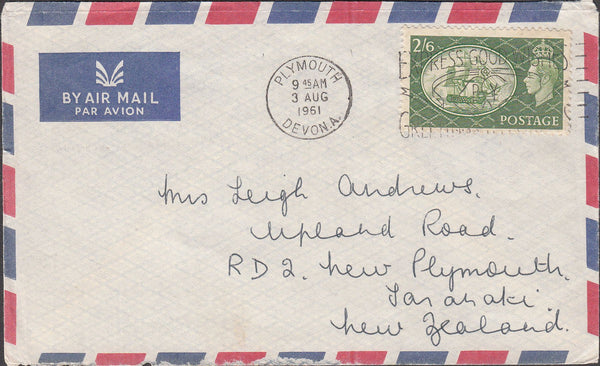 BY AIR MAIL
PAR AVION
PLYMOUTH
9 45 AM
3 AUG
1961
DEVON.A.
2/6
POSTAGE
Mrs Leigh Andrews.
Upland Road.
RD2. New Plymouth.
Taranaki.
New Zealand.